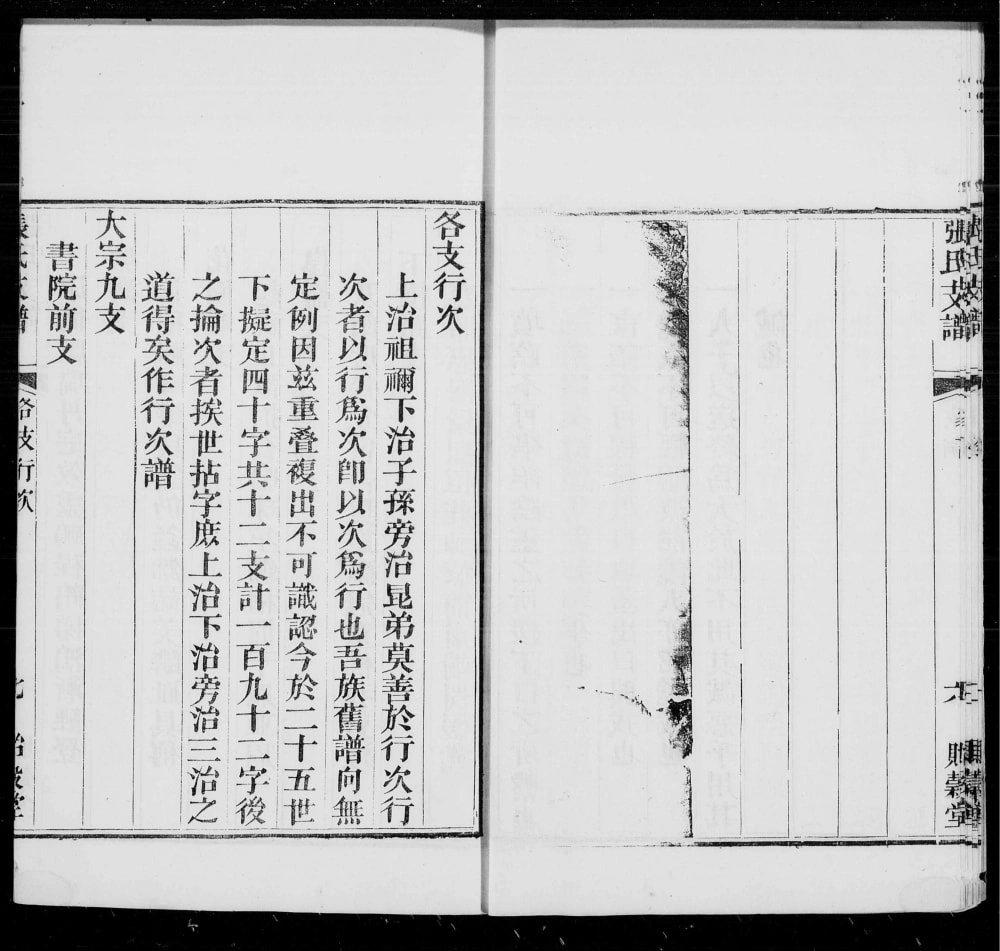 張氏支譜
六
賜穀堂
各支行次
上治祖禰下治子孫旁治昆弟莫善於行次行
次者以行爲次卽以次爲行也吾族舊譜向無
定例因兹重叠複出不可識認今於二十五世
下擬定四十字共十二支計一百九十二字後
之掄次者挨世拈字庶上治下治旁治三治之
道得矣作行次譜
大宗九支
書院前支
張氏支譜
各支行次